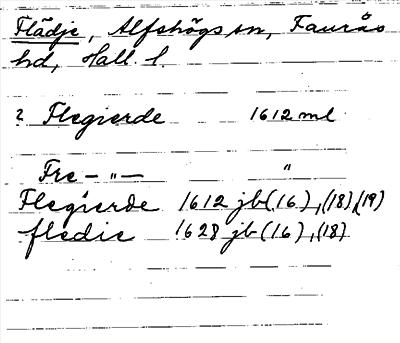 Flädje, Alfshögs sn, Faurås
hd, Hall. l.
? Flegierde 1612 ml
Fre – " – "
Flegierde 1612 jb (16), (18), (19)
fledie 1628 jb (16), (18)